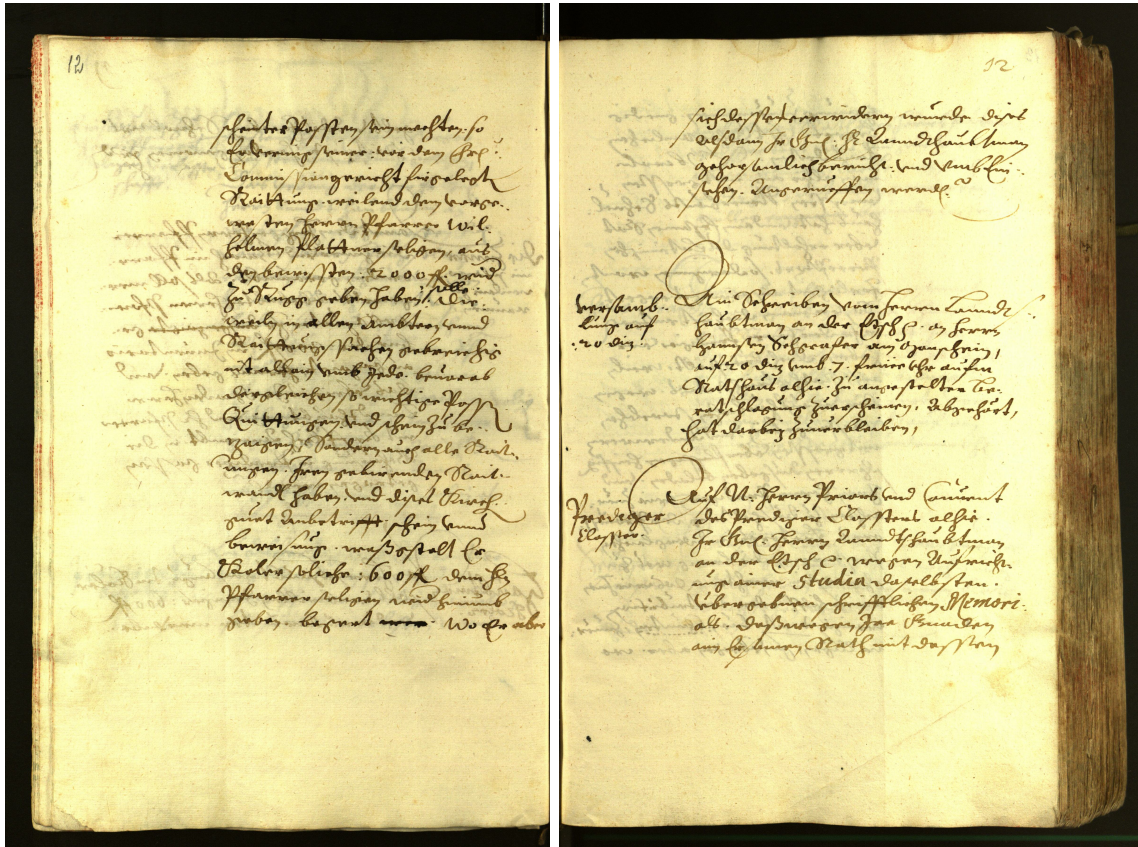 12
scheinter Possten sein mechten. so
Er vermug seiner. vor dem Ersl:
Commissiongericht fürgelegte
Raittung. weilend dem vorge-
werten Herrn Pfarrer Wil-
helmen Plattner seligen, aus
den bewissten 2000 f. wid
zu Rugg geben haben solle. Die-
weiln in allen Ambtern unnd
Raittungs sachen gebreichig
nit allain umb Jede. bevorab
dergleichen so wichtige Posst
Quittungen und schein zu be-
zaigen, Sondern auch alle Rait-
ungen. Iren gebierenden Rait-
wandl haben, und dises Kirch-
guet Anbetrifft, schein unnd
beweisung. wasgestalt Er
Koler soliche: 600 f. dem Hn
Pfarrer seligen wid hinumb
geben. begert. Wo Er aber
12
sich dessen verwidern wuerde. dises
Alsdann Ir Gn: Hr Lanndtshaubtman
gehorsamlich bericht. und umb Ein-
sehen. Angerueffen werde.
Versamb-
lung auf
20 diz
Ain Schreiben vom Herrn Lanndt
haubtman an der Etsch etc. an Herrn
Hannsen
auf 20 diz umb 7. fruee Uhr aufm
Rathaus alhie. zu angestelten Be-
ratschlagung zuerscheinen. Abgehört,
hat darbey zuverbleiben,
Prediger
Closster.
Auf N. Herrn Priors und Convent
des Prediger Clossters alhie.
Ir Gna: Herrn Lanndtshaubtman
an der Etsch etc. wegen Aufricht-
ung ainer Studia daselbsten.
Ubergebnen schrifftlichen Memori-
als. desswegen Ire Gnaden
ain Ersamen Rath mit dessten